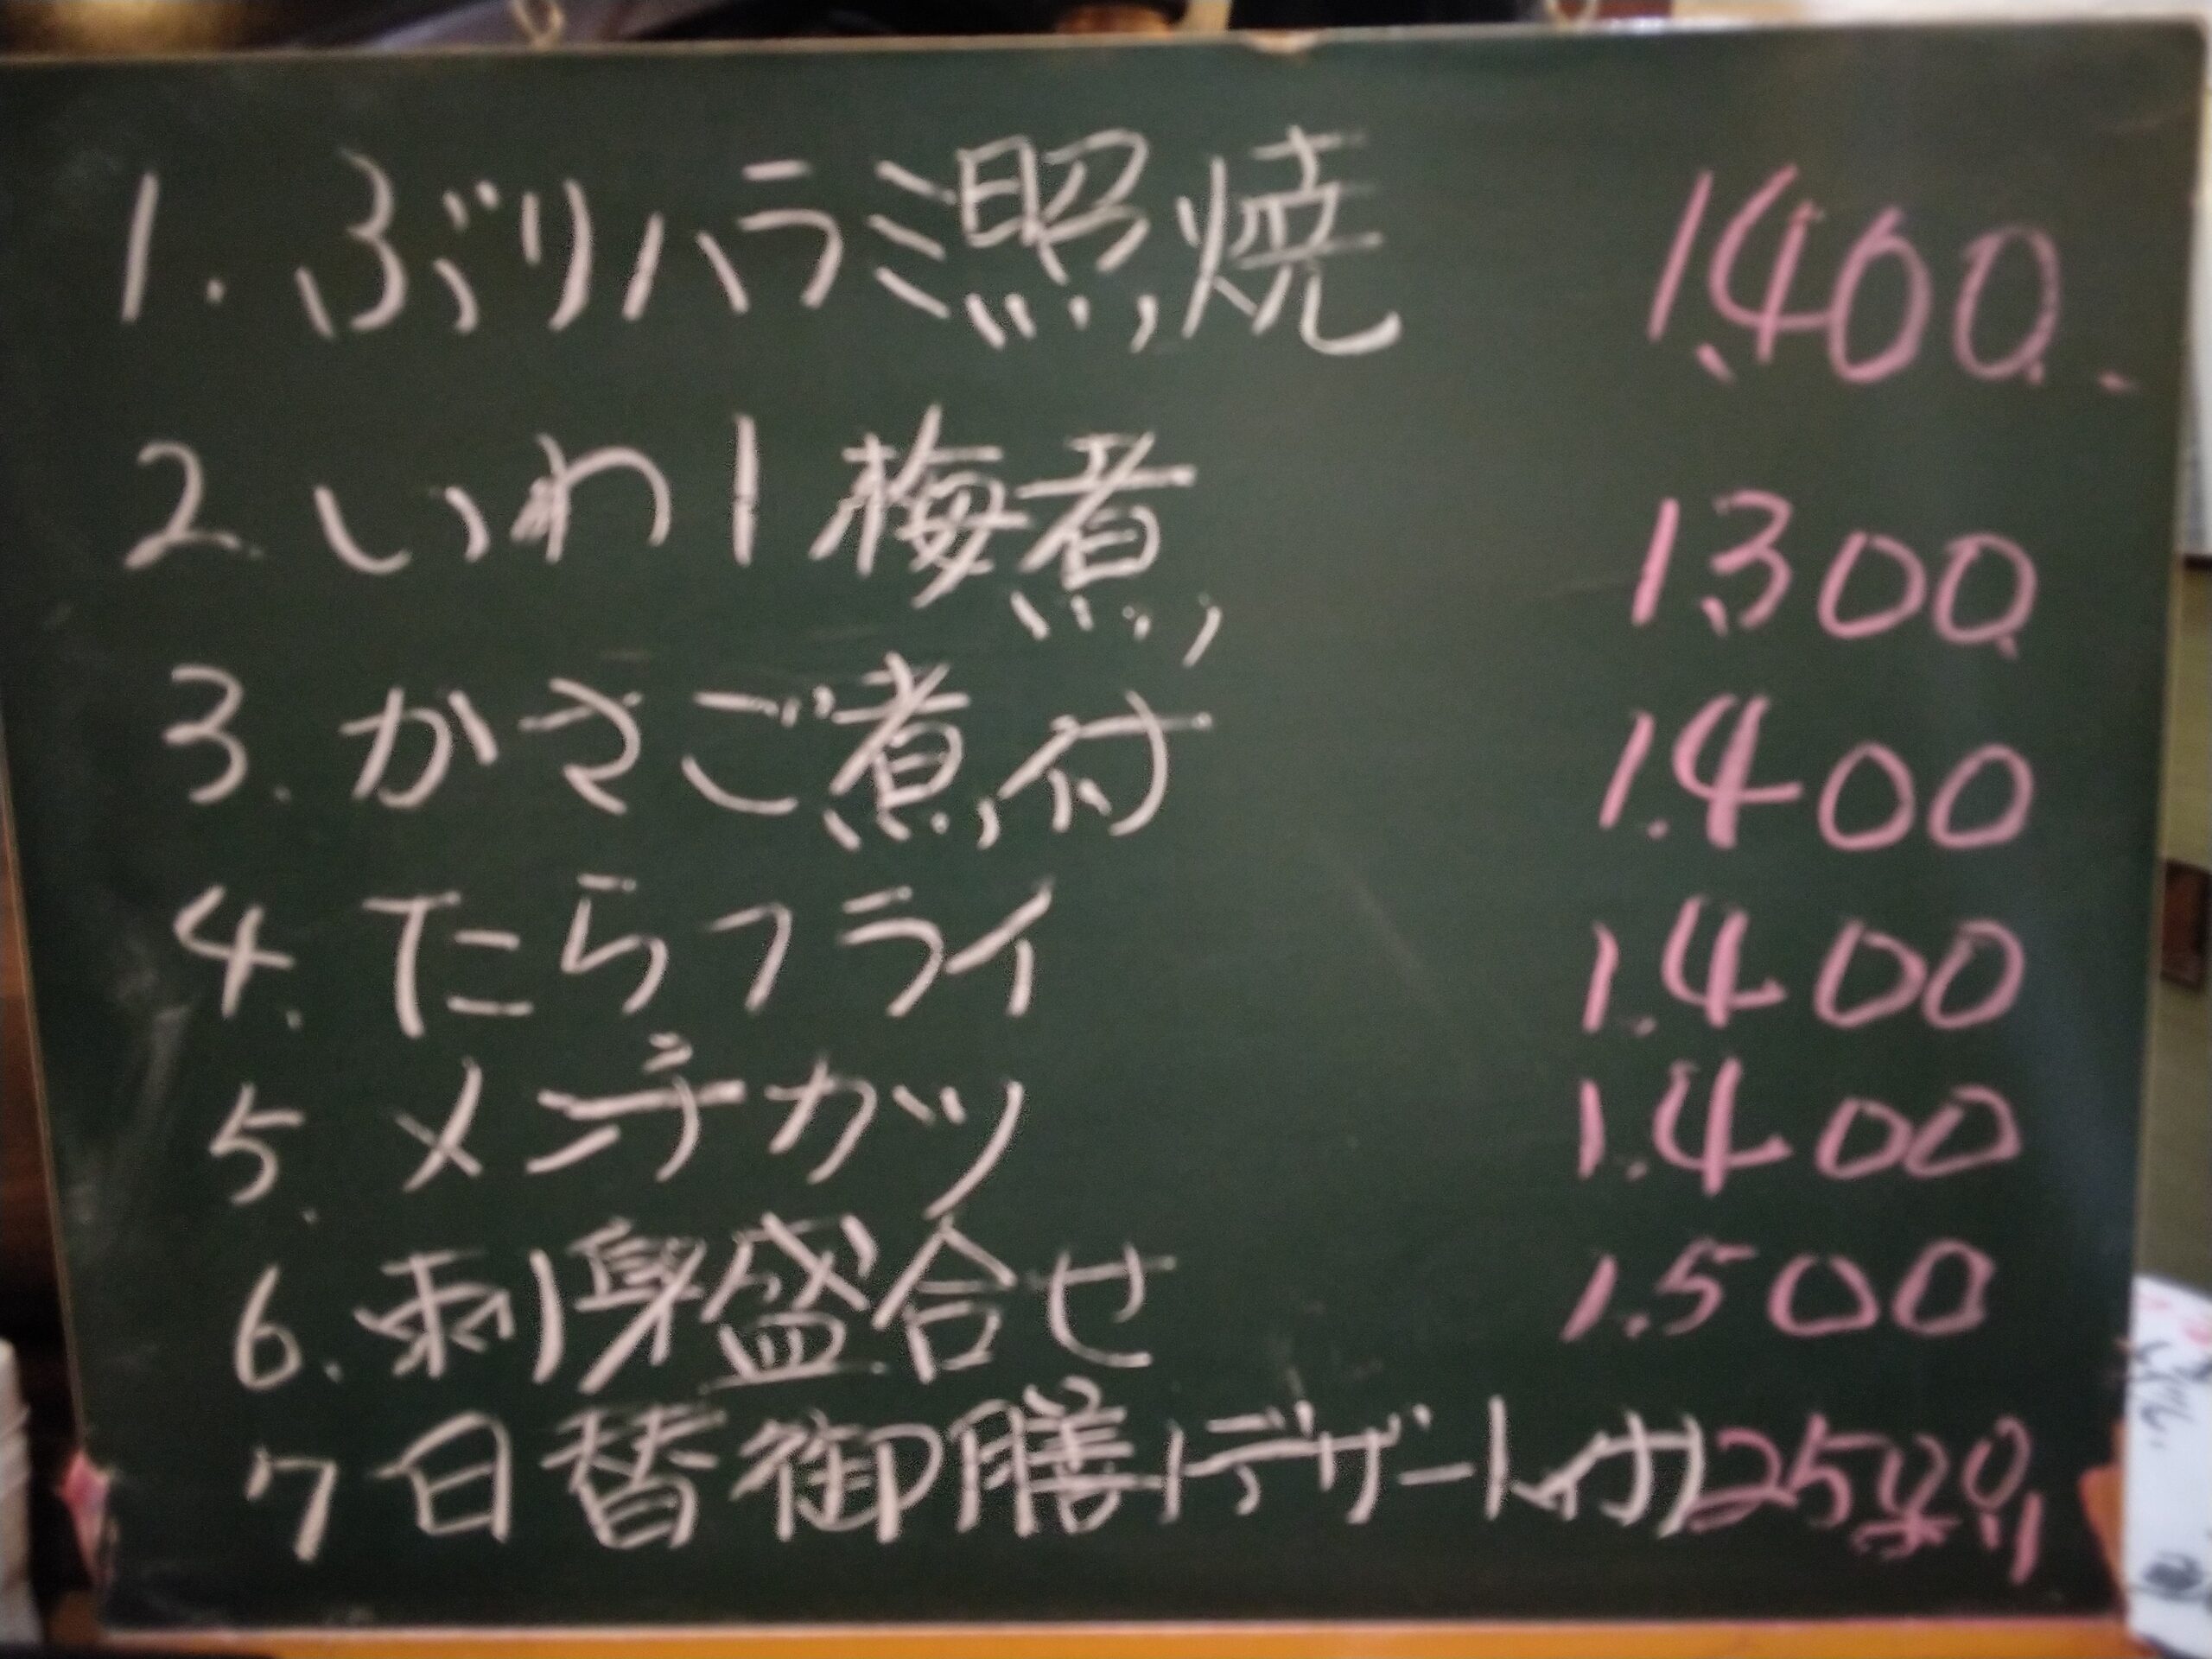 1. ぶりハラミ照焼 1,400.
2. いわし梅煮 1,300
3. かさご煮付 1.400
4. たらフライ 1.400
5. メンチカツ 1.400
6. 刺身盛合せ 1.500
7 日替御膳(デザート付) 2500